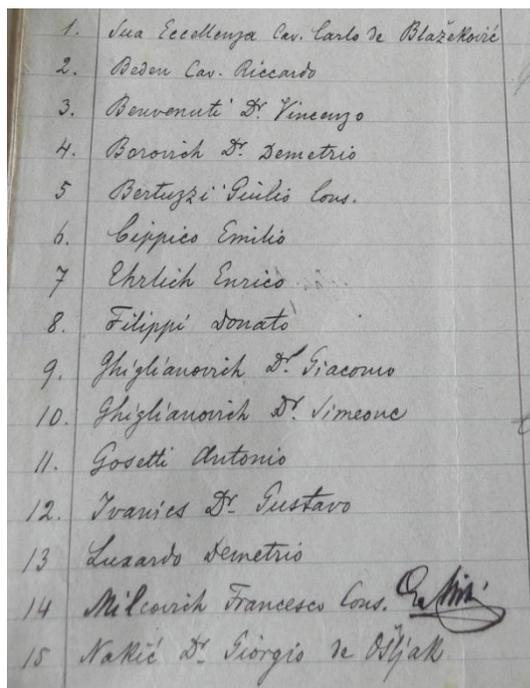 1. Sua Eccellenza Cav. Carlo de Blažeković
2. Beden Cav. Riccardo
3. Benvenuti Dr. Vincenzo
4. Borovich Dr. Demetrio
5 Bertuzzi Giulio Cons.
6. Cippico Emilio
7 Ehrlich Enrico
8. Filippi Donato
9. Ghiglianovich Dr. Giacomo
10. Ghiglianovich Dr. Simeone
11. Gosetti Antonio
12. Ivanics Dr. Gustavo
13 Luxardo Demetrio
14 Milcovich Francesco Cons.
15 Nakić Dr. Giorgio de Ošljak